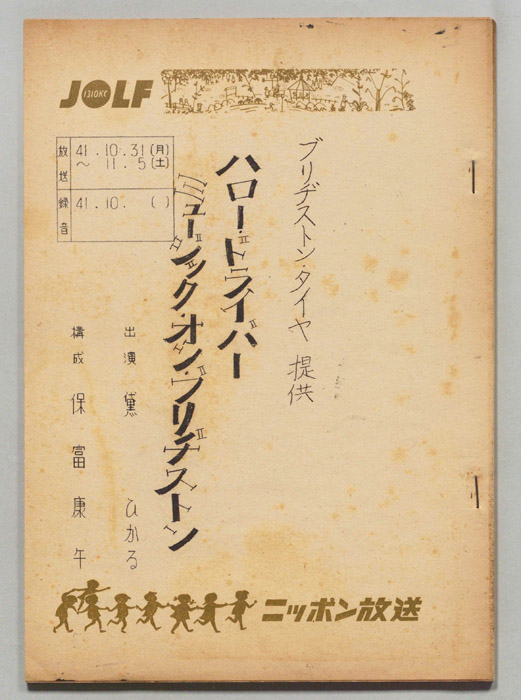 JOLF
1310KC
放送 41.10.31(月)
～ 11.5(土)
録音 41.10. ( )
ブリヂストン・タイヤ 提供
ハロー・ドライバー
ミュージック・オン・ブリヂストン
出演 黛 ひかる
構成 保富康午
ニッポン放送